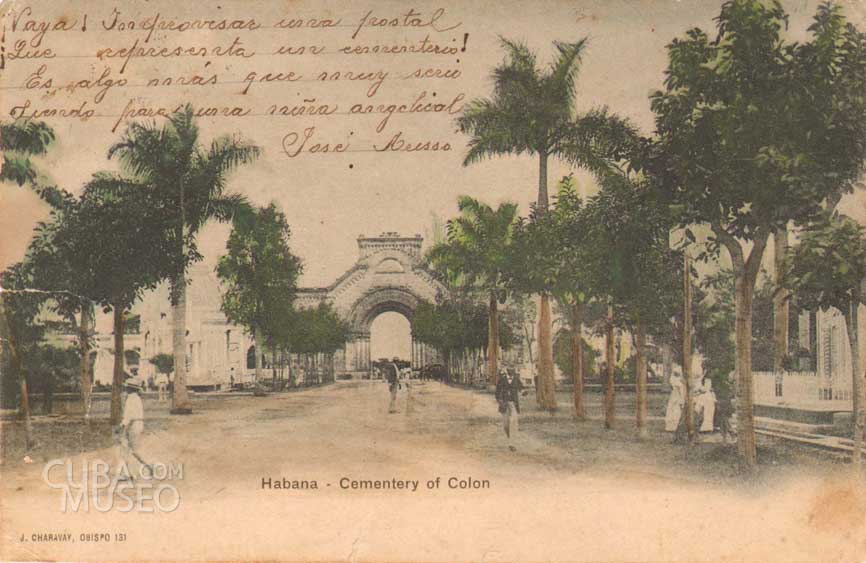 Vaya! Improvisar una postal
Que representa un cementerio!
Es algo más que muy serio
Siendo para una niña angelical
José Russo
Habana - Cementery of Colon
CUBA.COM
MUSEO
J. CHARAVAY, OBISPO 131